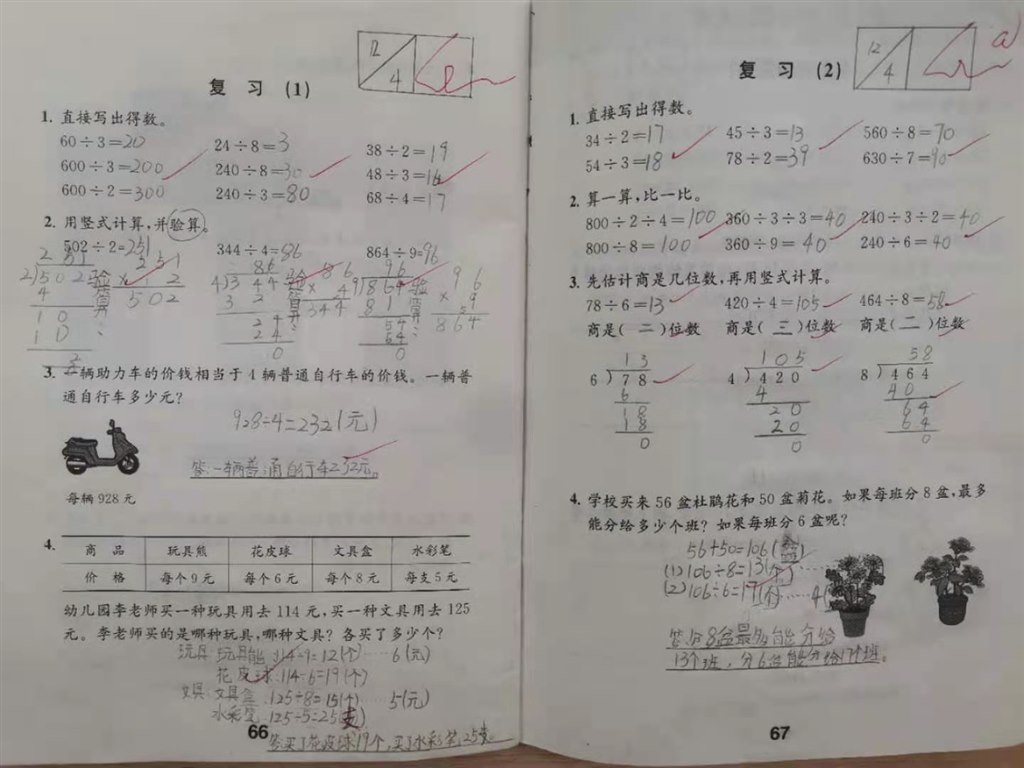 12
4
复 习 (1)
1. 直接写出得数。
60÷3=20 24÷8=3 38÷2=19
600÷3=200 240÷8=30 48÷3=16
600÷2=300 240÷3=80 68÷4=17
2. 用竖式计算,并验算。
502÷2=251 344÷4=86 864÷9=96
251 86 96
2)502 验算: 251 × 2 502
4
10
10
2
4)344 验算: 86 × 4 344
32
24
24
0
9)864 验算: 96 × 9 864
81
54
54
0
3. 一辆助力车的价钱相当于 4 辆普通自行车的价钱。一辆普
通自行车多少元?
928÷4=232(元)
答:一辆普通自行车232元。
每辆 928 元
4.
商 品 玩具熊 花皮球 文具盒 水彩笔
价 格 每个 9 元 每个 6 元 每个 8 元 每支 5 元
幼儿园李老师买一种玩具用去 114 元,买一种文具用去 125
元。李老师买的是哪种玩具,哪种文具?各买了多少个?
玩具 玩具熊:114÷9=12(个)……6(元)
花皮球:114÷6=19(个)
文具 文具盒:125÷8=15(个)……5(元)
水彩笔:125÷5=25(支)
答:买了花皮球19个,买了水彩笔25支。
66
12
4
复 习 (2)
1. 直接写出得数。
34÷2=17 45÷3=13 560÷8=70
54÷3=18 78÷2=39 630÷7=90
2. 算一算,比一比。
800÷2÷4=100 360÷3÷3=40 240÷3÷2=40
800÷8=100 360÷9=40 240÷6=40
3. 先估计商是几位数,再用竖式计算。
78÷6=13 420÷4=105 464÷8=58
商是( 二 )位数 商是( 三 )位数 商是( 二 )位数
13 105 58
6)78 4)420 8)464
6 4 40
18 20 64
18 20 64
0 0 0
4. 学校买来 56 盆杜鹃花和 50 盆菊花。如果每班分 8 盆,最多
能分给多少个班?如果每班分 6 盆呢?
56+50=106(盆)
(1)106÷8=13(个)……
(2)106÷6=17(个)……4(
答:分8盆最多能分给
13个班,分6盆能分给17个班。
67